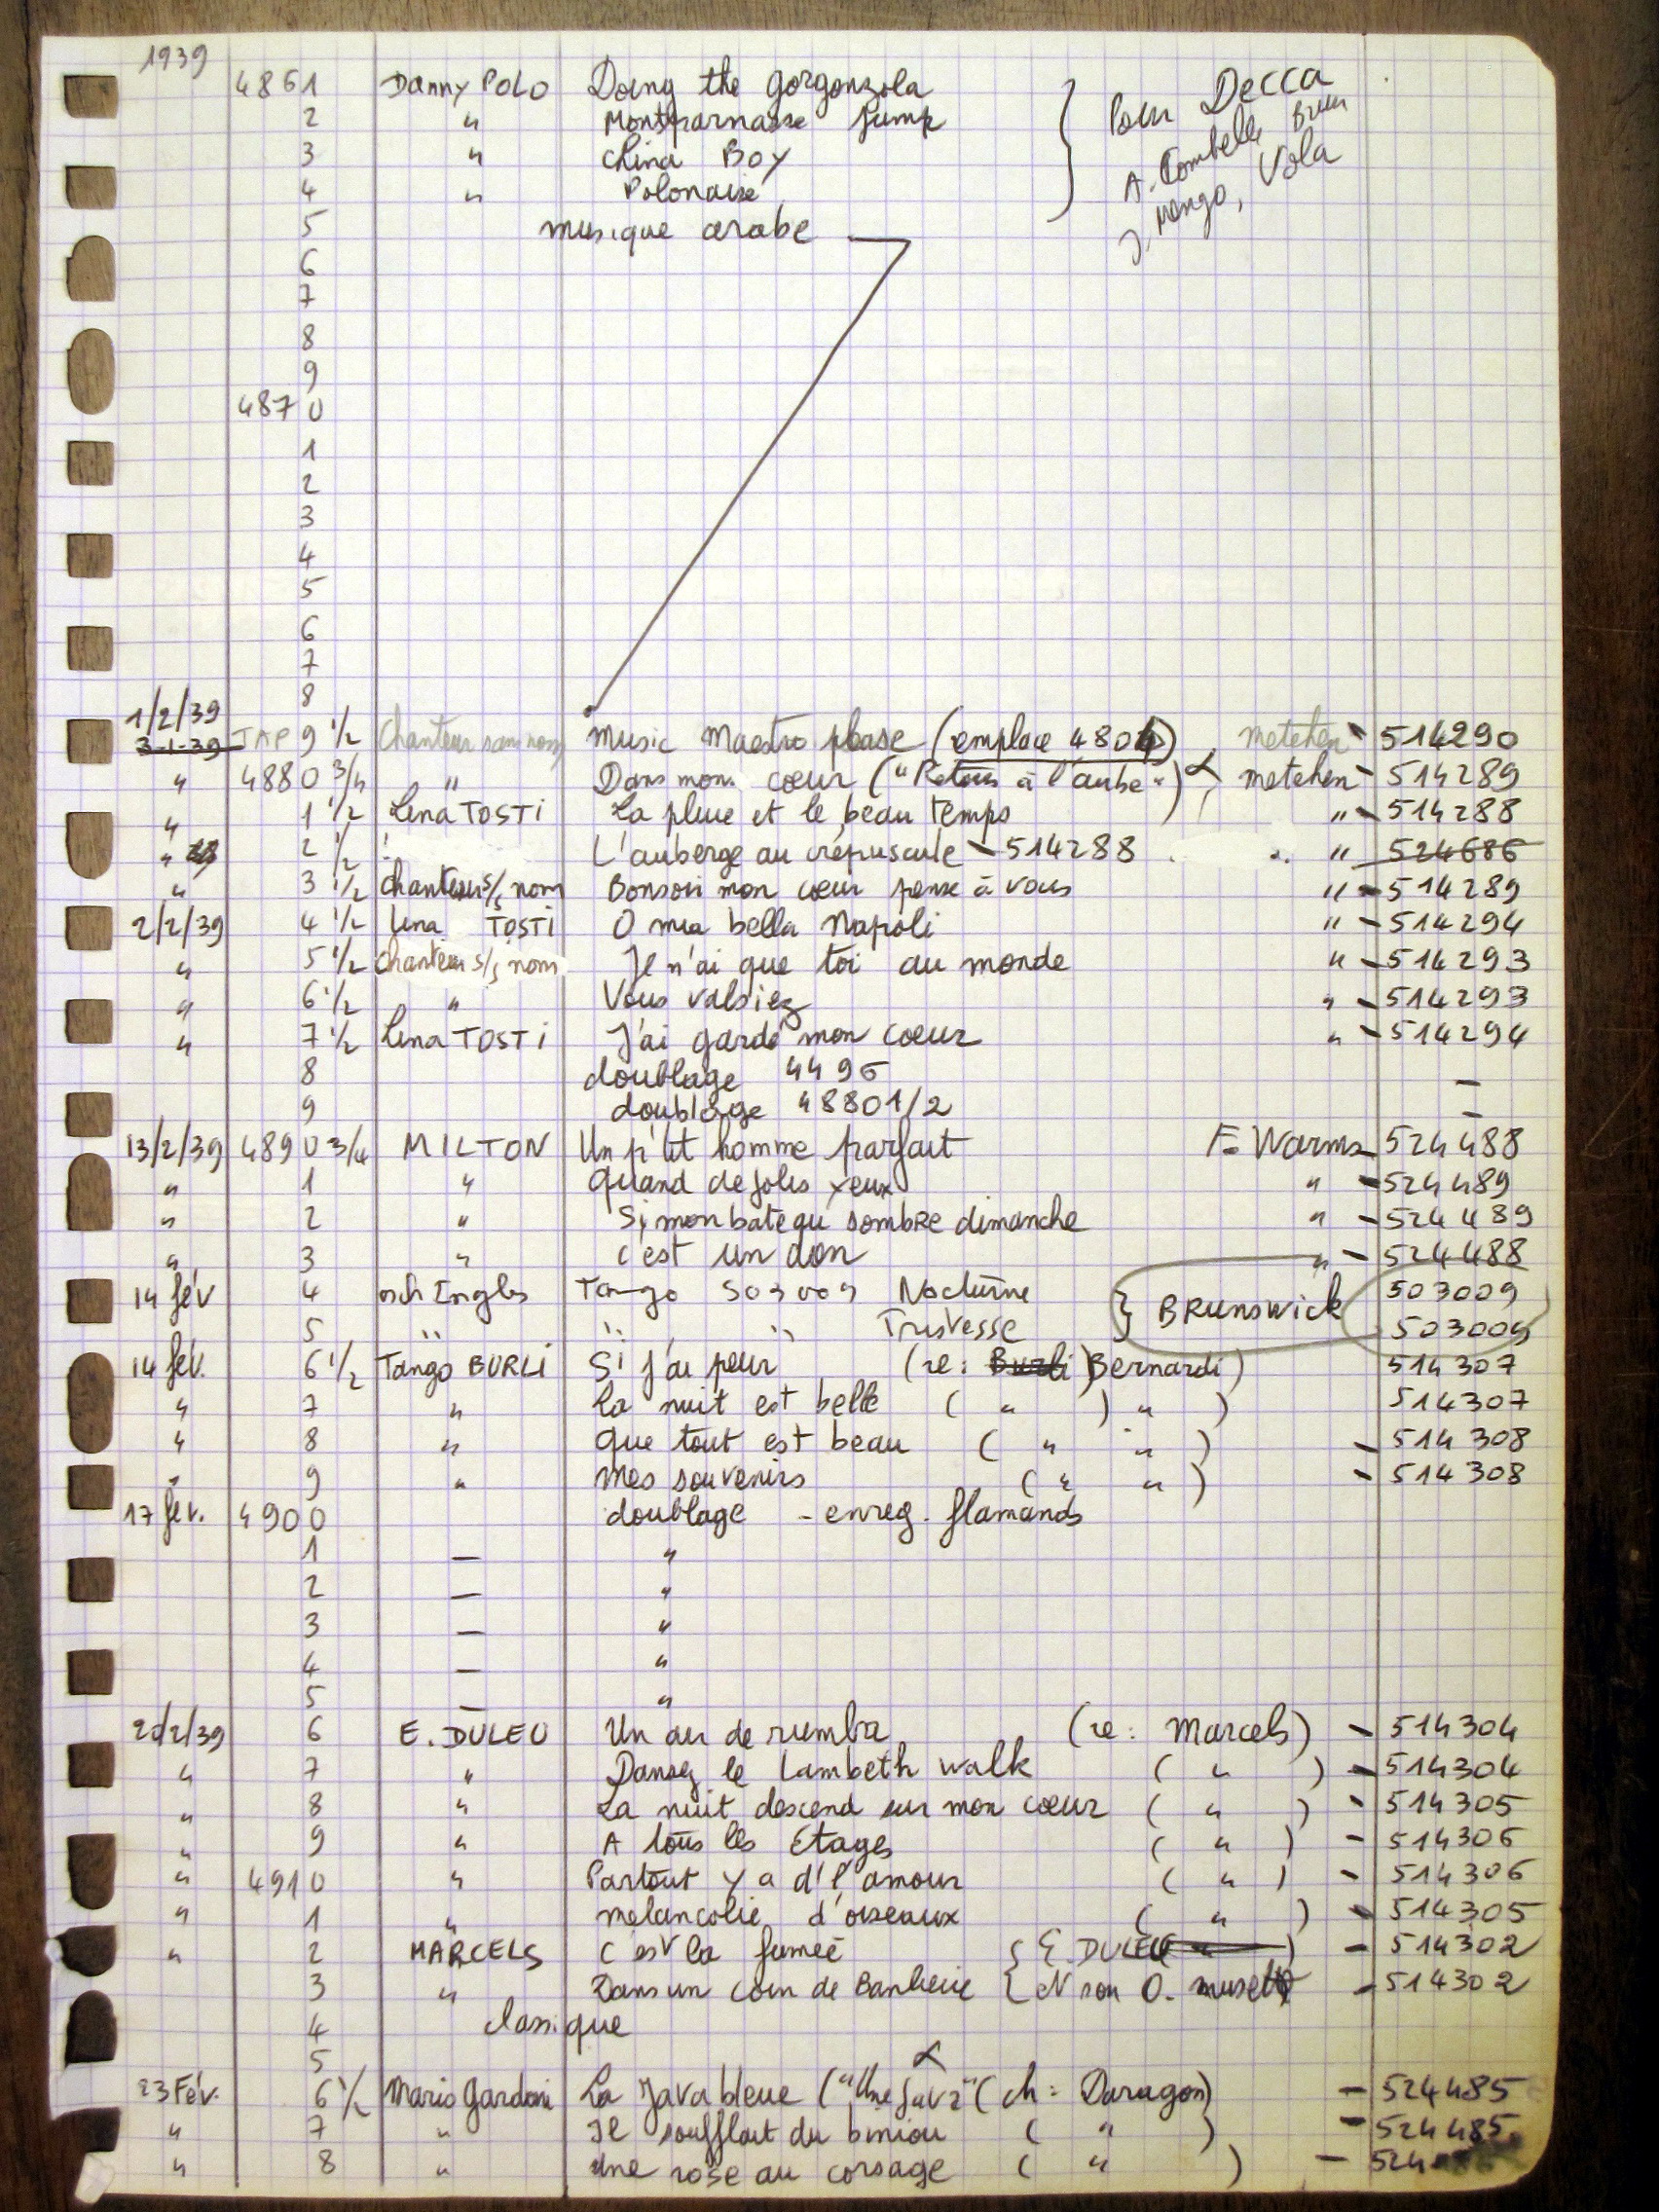 1939
4861 Danny POLO Doing the Gorgonzola } Pour Decca
2 " Montparnasse Jump A. Combelle
3 " China Boy Vola
4 " Polonaise
5 musique arabe
6
7
8
9
4870
1
2
3
4
5
6
7
8
1/2/39
3-1-39 JAP 9 1/2 Chanteur sans nom Music Maestro please (remplace 4804) metehen - 514290
" 4880 3/4 " Dans mon coeur ("Retour à l'aube") metehen - 514289
" 1 1/2 Lena TOSTI La pluie et le beau temps " - 514288
" 2 1/2 L'auberge au crépuscule - 514288 " 524686
" 3 1/2 Chanteur s/s nom Bonsoir mon coeur pense à vous " - 514289
2/2/39 4 1/2 Lena TOSTI O mia bella Napoli " - 514294
" 5 1/2 Chanteur s/s nom Je n'ai que toi au monde " - 514293
" 6 1/2 " Vous valsiez " - 514293
" 7 1/2 Lena TOSTI J'ai gardé mon coeur " - 514294
8 doublage 4496 -
9 doublage 48801/2 -
13/2/39 4890 3/4 MILTON Un p'tit homme parfait F. Warms - 524488
" 1 " Quand de jolis yeux " - 524489
" 2 " Si mon bateau sombre dimanche " - 524489
" 3 " C'est un don " - 524488
14 fév 4 orch Ingles Tango 503009 Nocturne } BRUNSWICK 503009
5 " " " Tristesse 503009
14 fév. 6 1/2 Tango BURLI Si j'ai peur (re: Burli) Bernardi) 514307
" 7 " La nuit est belle ( " ) " ) 514307
" 8 " Que tout est beau ( " " ) - 514308
" 9 " Mes souvenirs ( " " ) - 514308
17 fév. 4900 doublage - enreg. flamands
1 - "
2 - "
3 - "
4 - "
5 - "
20/2/39 6 E. DULEU Un air de rumba (re: Marcels) - 514304
" 7 " Dansez le Lambeth walk ( " ) - 514304
" 8 " La nuit descend sur mon coeur ( " ) - 514305
" 9 " A tous les étages ( " ) - 514306
" 4910 " Partout y a d'l'amour ( " ) - 514306
" 1 " Mélancolie d'oiseaux ( " ) - 514305
" 2 MARCELS C'est la fumée { E. DULEU ) - 514302
3 " Dans un coin de Banlieue { et son O. musette - 514302
4 classique
5
23 Fév. 6 1/2 Mario Gardoni La Java bleue ("Une Java" (ch: Daragon) - 524485
" 7 " Il soufflait du biniou ( " ) - 524485
" 8 " Une rose au corsage ( " ) - 524